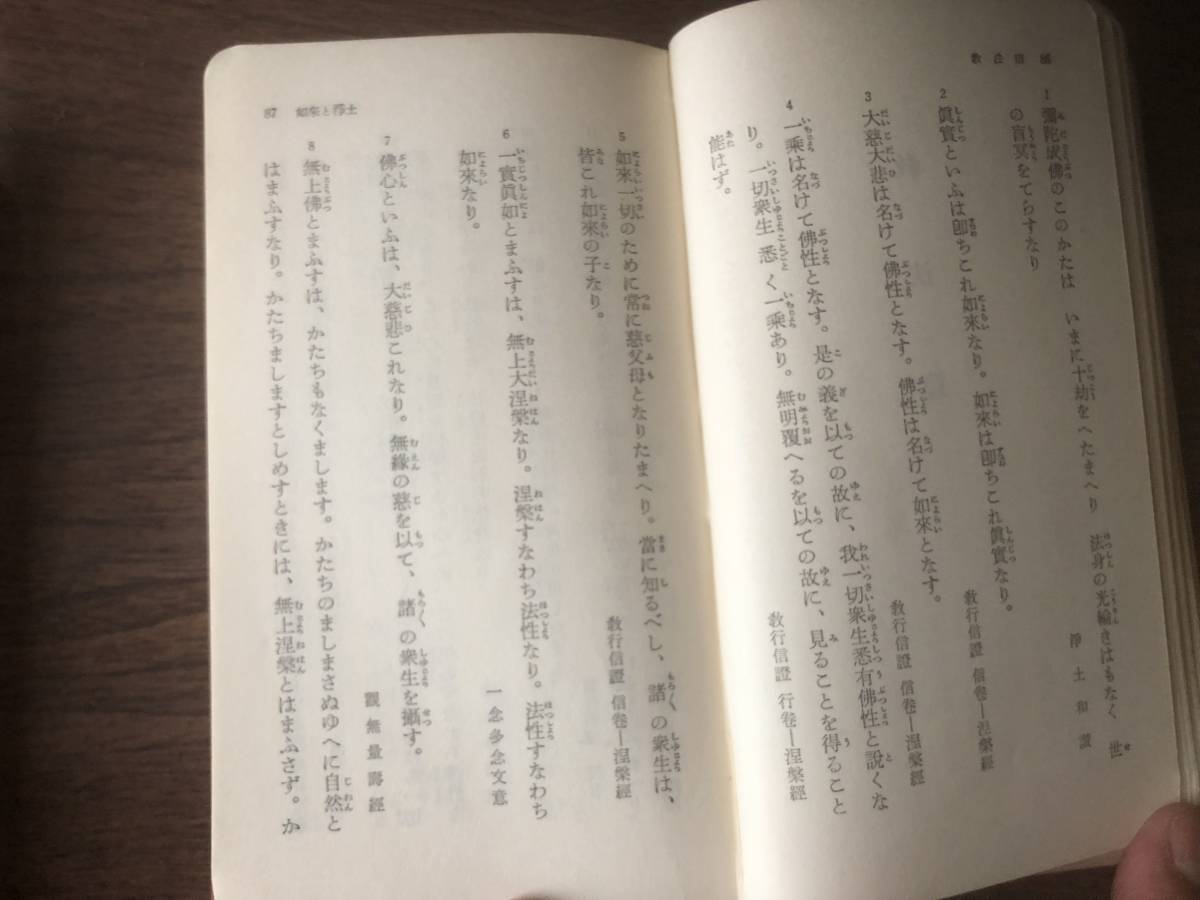 教法篇 86
1 彌陀成佛のこのかたは いまに十劫をへたまへり 法身の光輪きはもなく 世
の盲冥をてらすなり 淨土和讃
2 眞實といふは卽ちこれ如來なり。如來は卽ちこれ眞實なり。
教行信證 信卷―涅槃經
3 大慈大悲は名けて佛性となす。佛性は名けて如來となす。
教行信證 信卷―涅槃經
4 一乘は名けて佛性となす。是の義を以ての故に、我一切衆生悉有佛性と說くな
り。一切衆生 悉く一乘あり。無明覆へるを以ての故に、見ることを得ること
能はず。 教行信證 行卷―涅槃經
5 如來一切のために常に慈父母となりたまへり。當に知るべし、諸の衆生は、
皆これ如來の子なり。 教行信證 信卷―涅槃經
6 一實眞如とまふすは、無上大涅槃なり。涅槃すなわち法性なり。法性すなわち
如來なり。 一念多念文意
7 佛心といふは、大慈悲これなり。無緣の慈を以て、諸の衆生を攝す。
觀無量壽經
8 無上佛とまふすは、かたちもなくまします。かたちのましまさぬゆへに自然と
はまふすなり。かたちましますとしめすときには、無上涅槃とはまふさず。か
87 如來と淨土